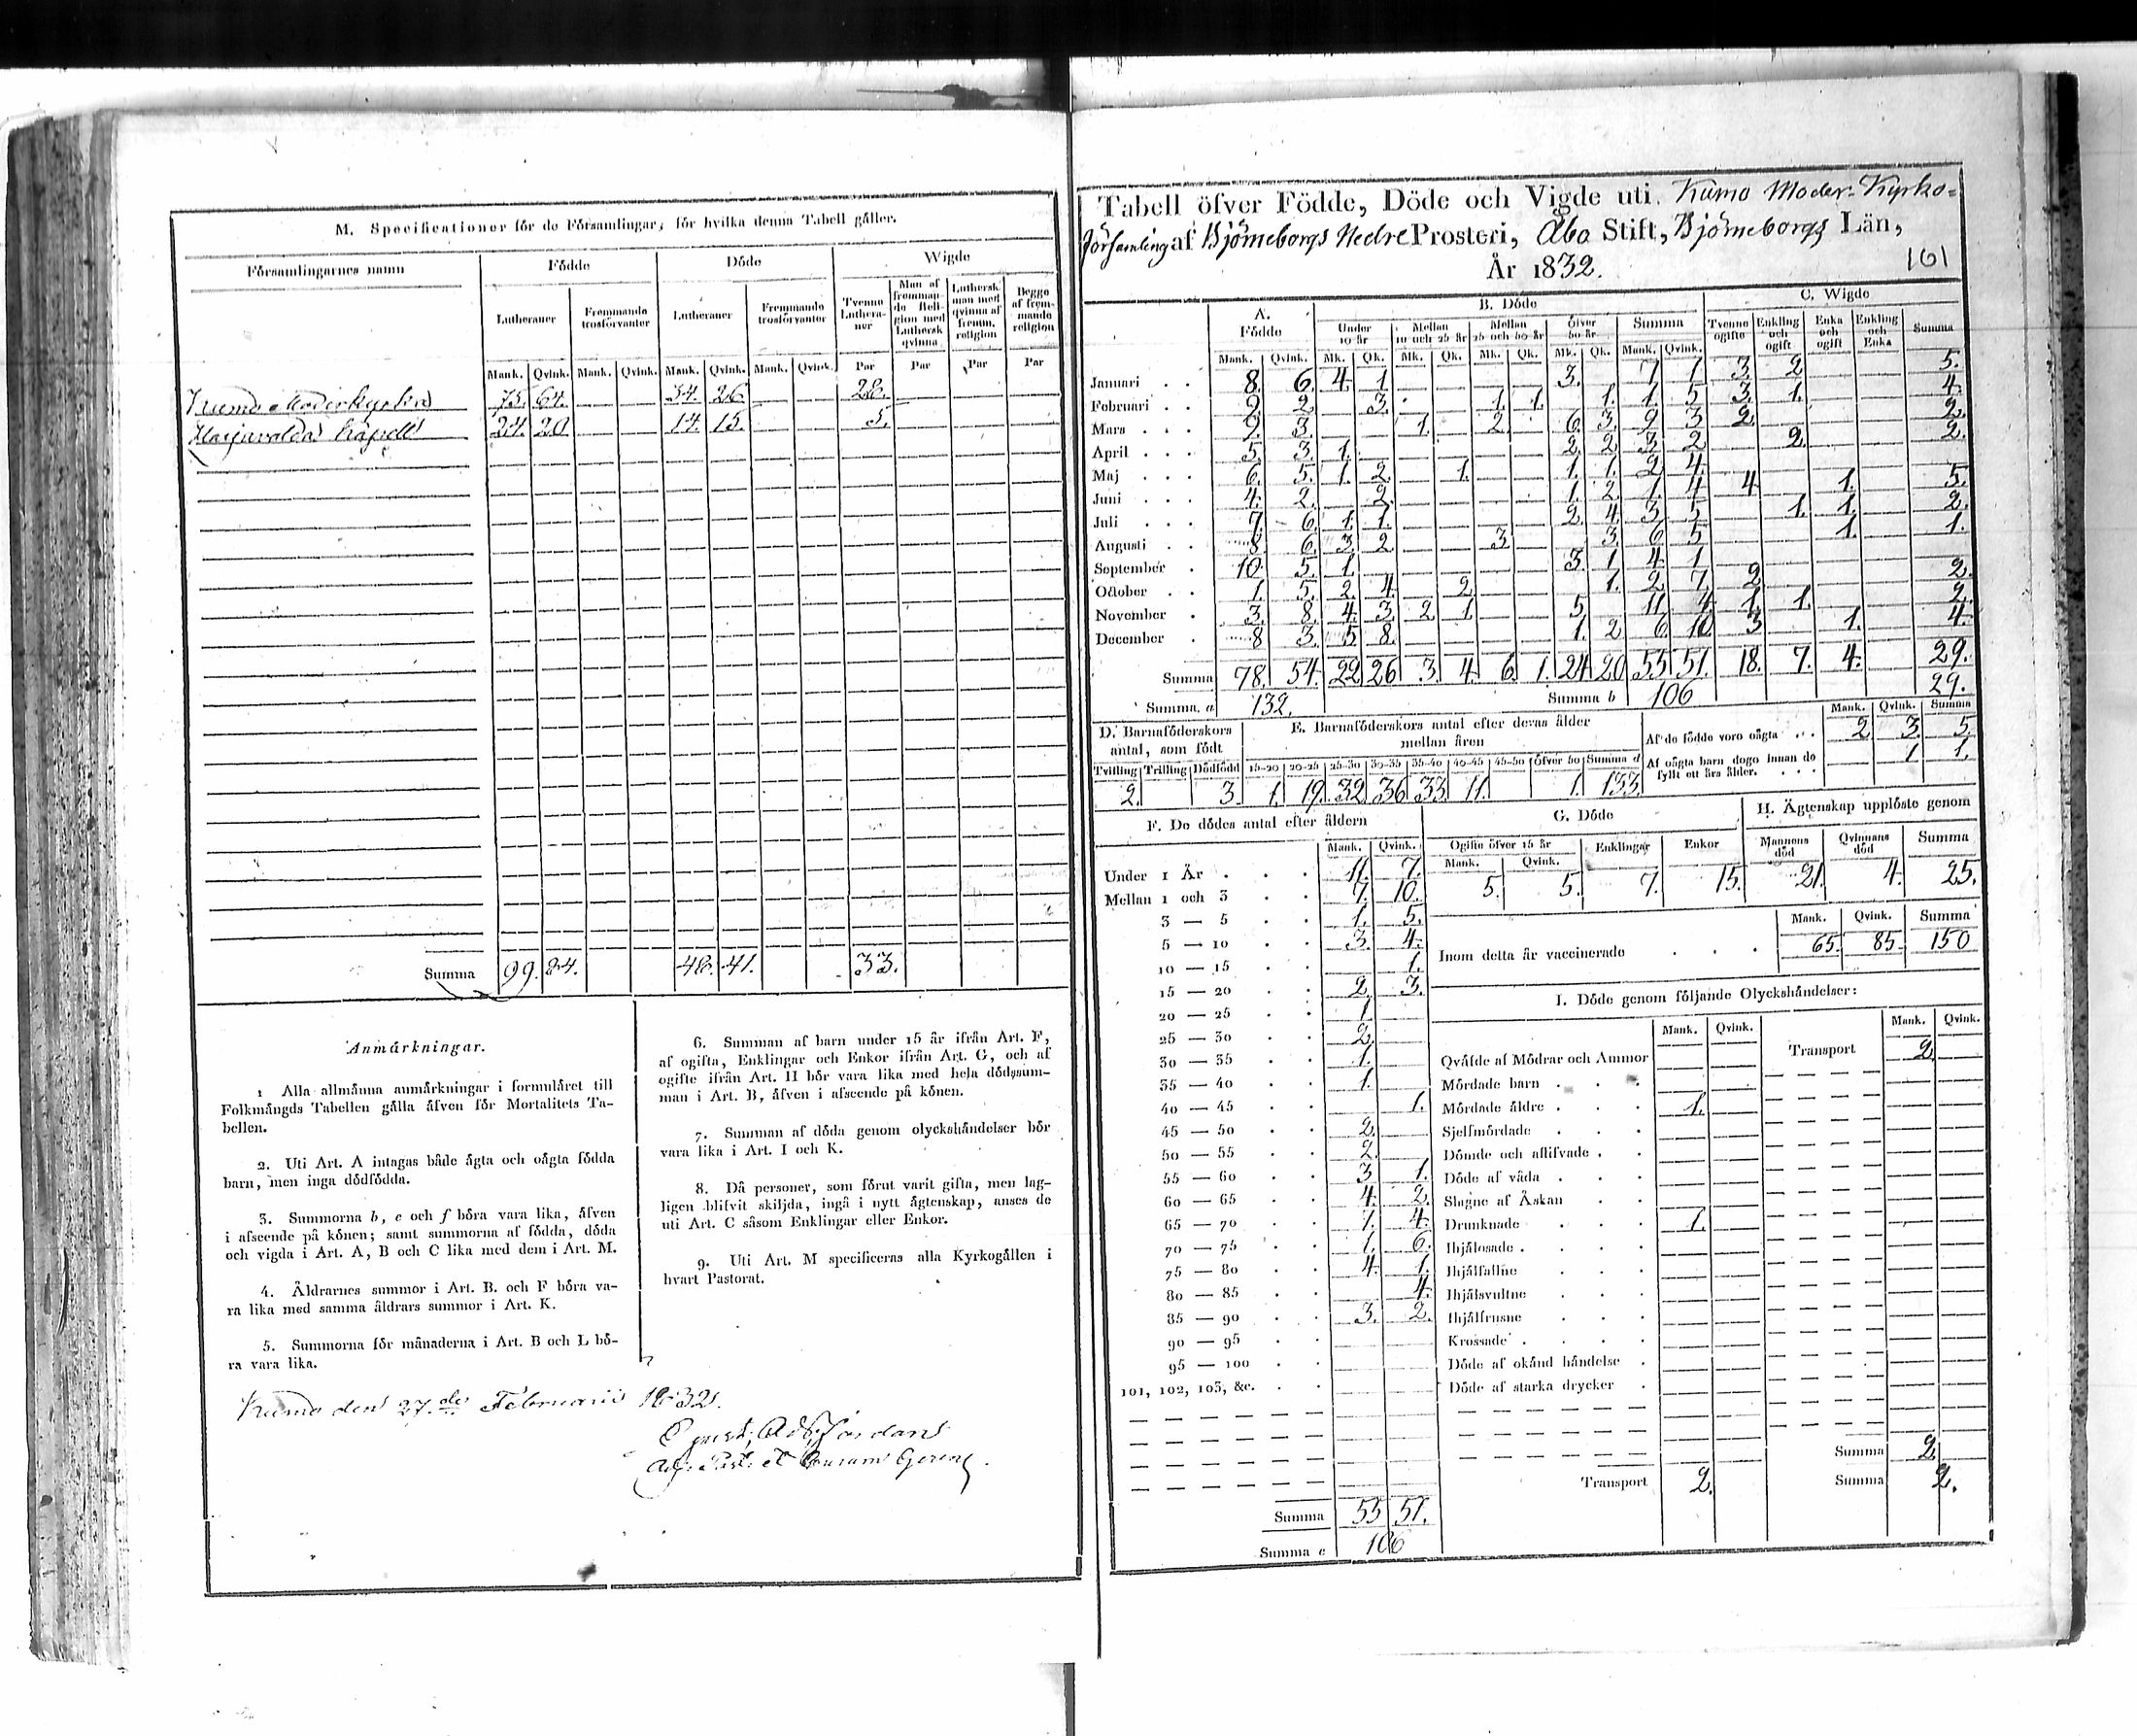 M. Specificationer för de Församlingar, för hvilka denna Tabell gäller.
Församlingarnes namn Födde Döde Wigde
Lutheraner Fremmande trosförvanter Lutheraner Fremmande trosförvanter Tvenne Lutheraner Man af fremmande Religion med Luthersk qvinna Luthersk man med qvinna af fremm. religion Begge af fremmande religion
Mank. Qvink. Mank. Qvink. Mank. Qvink. Mank. Qvink. Par Par Par Par
Kumo Moderkyrka 75. 64. 34. 26. 28.
Harjavalda Kapell 24. 20. 14. 15. 5.
Summa 99. 84. 48. 41. 33.
Anmärkningar.
1 Alla allmänna anmärkningar i formuläret till
Folkmängds Tabellen gälla äfven för Mortalitets Ta-
bellen.
2. Uti Art. A intagas både ägta och oägta födda
barn, men inga dödfödda.
3. Summorna b, c och f böra vara lika, äfven
i afseende på könen; samt summorna af födda, döda
och vigda i Art. A, B och C lika med dem i Art. M.
4. Åldrarnes summor i Art. B. och F böra va-
ra lika med samma åldrars summor i Art. K.
5. Summorna för månaderna i Art. B och L bö-
ra vara lika.
6. Summan af barn under 15 år ifrån Art. F,
af ogifta, Enklingar och Enkor ifrån Art. G, och af
ogifte ifrån Art. H bör vara lika med hela dödssum-
man i Art. B, äfven i afseende på könen.
7. Summan af döda genom olyckshändelser bör
vara lika i Art. I och K.
8. Då personer, som förut varit gifta, men lag-
ligen blifvit skiljda, ingå i nytt ägtenskap, anses de
uti Art. C såsom Enklingar eller Enkor.
9. Uti Art. M specificeras alla Kyrkogällen i
hvart Pastorat.
Kumo den 27.de Februarii 1832.
Tabell öfver Födde, Döde och Vigde uti Kumo Moder-Kyrko-
församling af Björneborgs Nedre Prosteri, Åbo Stift, Björneborgs Län,
År 1832. 161
A. Födde B. Döde C. Wigde
Under 10 år Mellan 10 och 25 år Mellan 25 och 50 år Öfver 50 år Summa Tvenne ogifte Enkling och ogift Enka och ogift Enkling och Enka Summa
Mank. Qvink. Mk. Qk. Mk. Qk. Mk. Qk. Mk. Qk. Mank. Qvink.
Januari 8. 6. 4. 1. 3. 7 1 3. 2 5.
Februari 2. 3. 1. 1. 1. 1. 5 3 1. 4.
Mars 3. 1. 2. 6. 3. 9 3 2. 2.
April 5. 3. 1. 2. 2 3. 2 2. 2.
Maj 6. 5. 1. 2. 1. 1. 1. 2 4.
Juni 4. 2. 2. 1. 2. 1. 4 4 1. 5.
Juli 7. 6. 1. 1. 2. 4. 3 5 1. 1. 2.
Augusti 8 6. 3. 2. 3. 3. 6 5 1. 1.
September 10. 5. 1. 3. 1 4. 1
October 1. 5. 2. 4. 2. 1. 2 7. 2 2.
November 3. 8. 4. 3. 2. 1. 5. 11 4. 1. 1. 2.
December 8 3. 5 8. 1. 2 6. 10 3 1. 4.
Summa 78. 54. 22 26 3. 4. 6. 1. 24. 20 55 51. 18. 7. 4. 29.
Summa. a 132. Summa b 106 29.
D. Barnaföderskors antal, som födt
Tvilling Trilling Dödfödd
2. 3.
E. Barnaföderskors antal efter deras ålder mellan åren
15-20 20-25 25-30 30-35 35-40 40-45 45-50 Öfver 50 Summa d
1. 19. 32. 36 33 11. 1. 133.
Mank. Qvink. Summa
Af de födde voro oägta 2 3. 5.
Af oägta barn dogo innan de fyllt ett års ålder. 1 1.
F. De dödes antal efter åldern
Mank. Qvink.
Under 1 År 11. 7.
Mellan 1 och 3 7. 10.
3 — 5 1. 5.
5 — 10 3. 4.
10 — 15 1.
15 — 20 2. 3.
20 — 25 1
25 — 30 2.
30 — 35 1.
35 — 40 1.
40 — 45 1.
45 — 50 2.
50 — 55 2.
55 — 60 3 1.
60 — 65 4. 2.
65 — 70 7. 4.
70 — 75 1. 6.
75 — 80 4. 1.
80 — 85 4.
85 — 90 3. 2.
90 — 95
95 — 100
101, 102, 103, &c.
Summa 55 51.
Summa c 106
G. Döde
Ogifte öfver 15 år Enklingar Enkor
Mank. Qvink.
5. 5. 7. 15.
H. Ägtenskap upplöste genom
Mannens död Qvinnans död Summa
21. 4. 25.
Mank. Qvink. Summa
Inom detta år vaccinerade 65. 85. 150
I. Döde genom följande Olyckshändelser:
Mank. Qvink. Mank. Qvink.
Qväfde af Mödrar och Ammor Transport 2.
Mördade barn
Mördade äldre 1.
Sjelfmördade
Dömde och aflifvade
Döde af våda
Slagne af Åskan
Drunknade 1.
Ihjälosade
Ihjälfallne
Ihjälsvultne
Ihjälfrusne
Krossade
Döde af okänd händelse
Döde af starka drycker
Summa 2.
Transport 2. Summa 2.